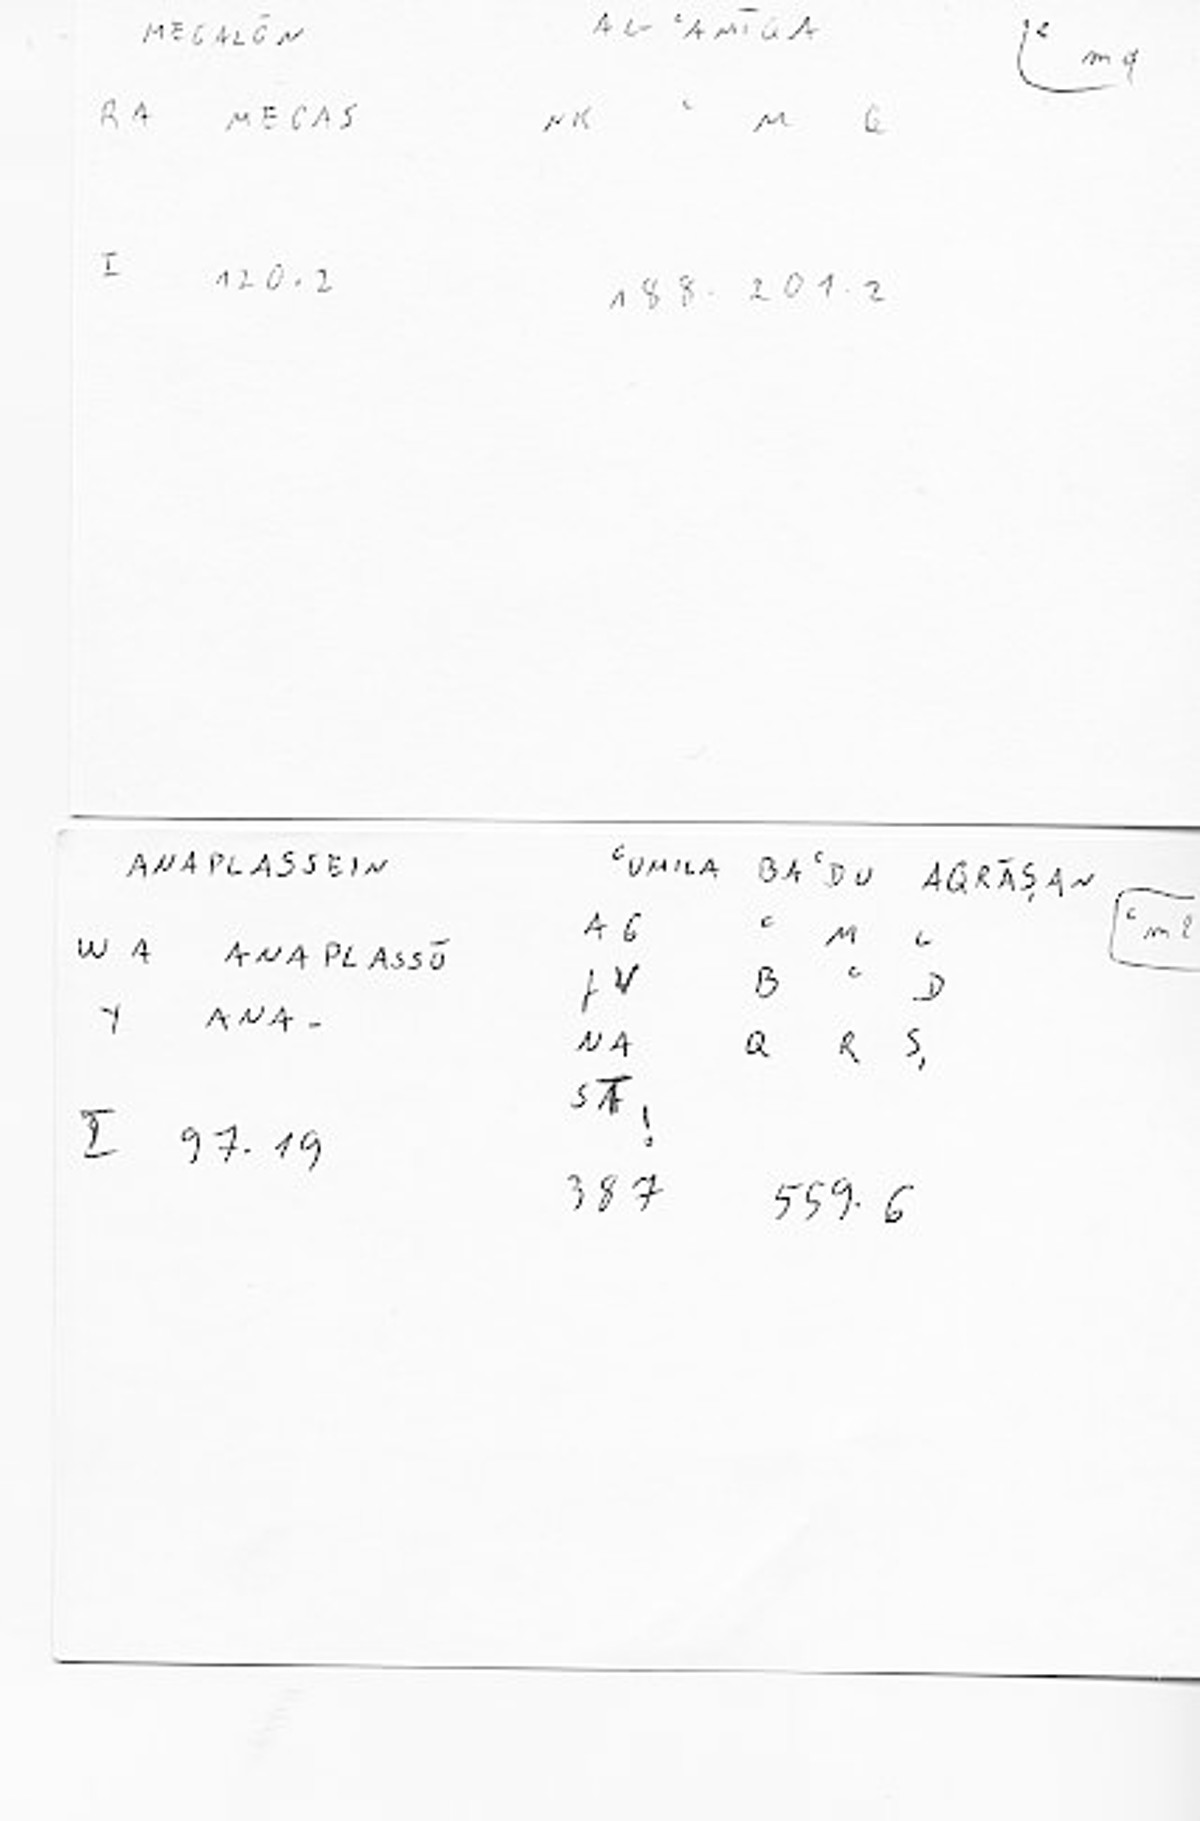 MEGALŌN AL-ʿAMĪQA ʿmq
RA MEGAS NK ʿ M Q
I 120.2 188. 201.2
ANAPLASSEIN ʿUMILA BAʿDU AQRĀṢAN ʿml
WA ANAPLASSŌ AG ʿ M L
Y ANA- B ʿ D
NA Q R Ṣ
!
I 97.19 387 559.6